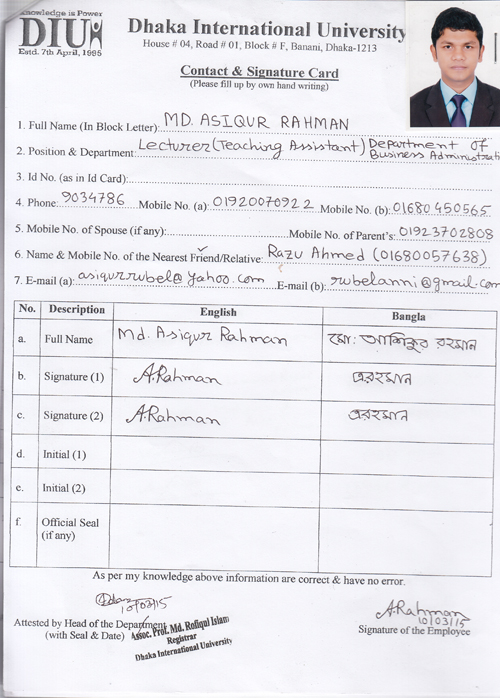 Knowledge is Power
DIU
Estd. 7th April, 1995
Dhaka International University
House # 04, Road # 01, Block # F, Banani, Dhaka-1213
Contact & Signature Card
(Please fill up by own hand writing)
1. Full Name (In Block Letter): MD. ASIQUR RAHMAN
2. Position & Department: Lecturer (Teaching Assistant) Department of Business Administrati
3. Id No. (as in Id Card):
4. Phone: 9034786 Mobile No. (a): 01920070922 Mobile No. (b): 01680450565
5. Mobile No. of Spouse (if any): Mobile No. of Parent's: 01923702808
6. Name & Mobile No. of the Nearest Friend/Relative: Razu Ahmed (01680057638)
7. E-mail (a): asiqurrubel@yahoo.com E-mail (b): rubelanni@gmail.com
No. Description English Bangla
a. Full Name Md. Asiqur Rahman মো: আশিকুর রহমান
b. Signature (1) A.Rahman এরহমান
c. Signature (2) A.Rahman এরহমান
d. Initial (1)
e. Initial (2)
f. Official Seal (if any)
As per my knowledge above information are correct & have no error.
10/03/15
A.Rahman
10/03/15
Attested by Head of the Department
(with Seal & Date)
Assoc. Prof. Md. Rofiqul Islam
Registrar
Dhaka International University
Signature of the Employee